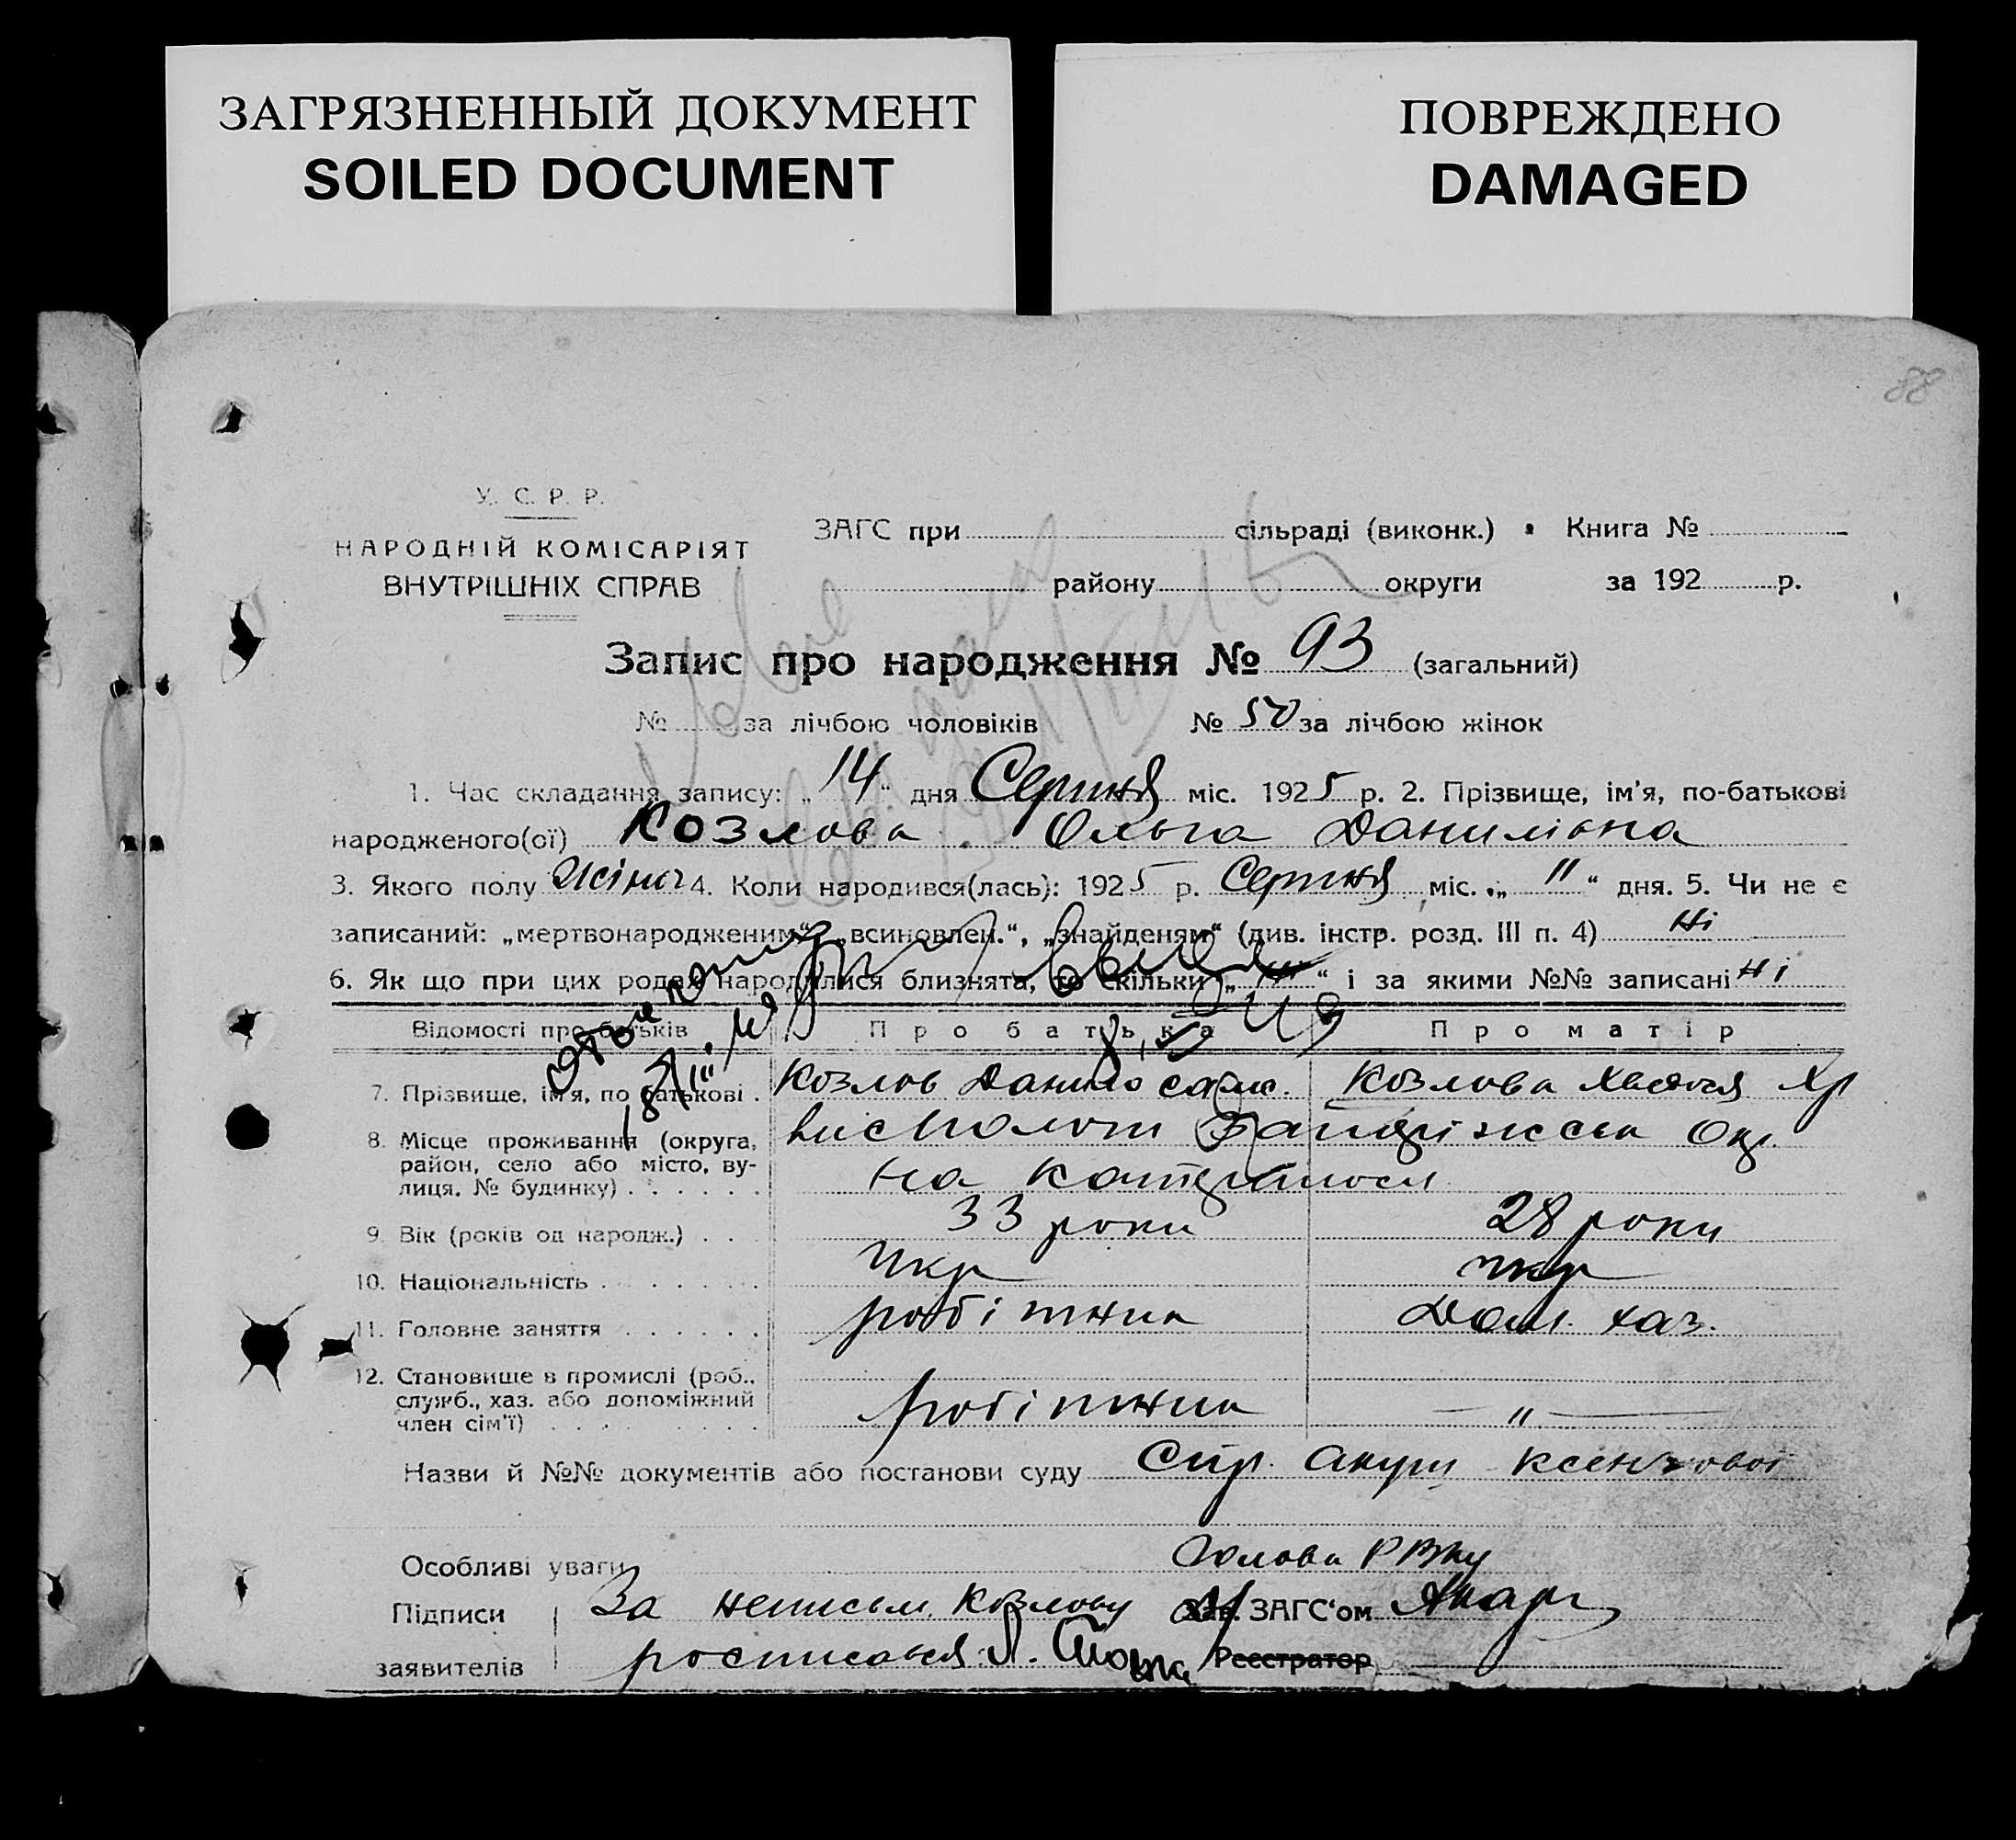 ЗАГРЯЗНЕННЫЙ ДОКУМЕНТ
SOILED DOCUMENT
ПОВРЕЖДЕНО
DAMAGED
88
У. С. Р. Р.
НАРОДНІЙ КОМІСАРІЯТ
ВНУТРІШНІХ СПРАВ
ЗАГС при сільраді (виконк.) Книга №
району округи за 192 р.
Запис про народження № 93 (загальний)
№ за лічбою чоловіків № 50 за лічбою жінок
1. Час складання запису: „14“ дня Серпня міс. 1925 р. 2. Прізвище, ім'я, по-батькові
народженого(ої) Козлова Ольга Данилівна
3. Якого полу жіноч 4. Коли народився(лась): 1925 р. Серпня міс. „11“ дня. 5. Чи не є
записаний: „мертвонародженим“, „всиновлен.“, „знайденям“ (див. інстр. розд. III п. 4) Ні
6. Як що при цих родах народилися близнята, то скільки „ні“ і за якими №№ записані ні
Відомості про батьків Про батька Про матір
7. Прізвище, ім'я, по батькові . Козлов Данило Сам. Козлова Хведося Хр
8. Місце проживання (округа, Запоріжська Окр.
район, село або місто, ву-
лиця. № будинку) . . . . . . на
9. Вік (років од народж.) . . . 33 роки 28 роки
10. Національність . . . . . . . Укр Укр
11. Головне заняття . . . . . . робітник Дом. хаз.
12. Становище в промислі (роб.,
служб., хаз. або допоміжний
член сім'ї) . . . . . . . . . робітник — „ —
Назви й №№ документів або постанови суду Спр. Акуш Ксензової
Особливі уваги Голова РВКу
Підписи За неписьм. Козлову Зав. ЗАГС'ом
заявителів росписався Л. Реєстратор